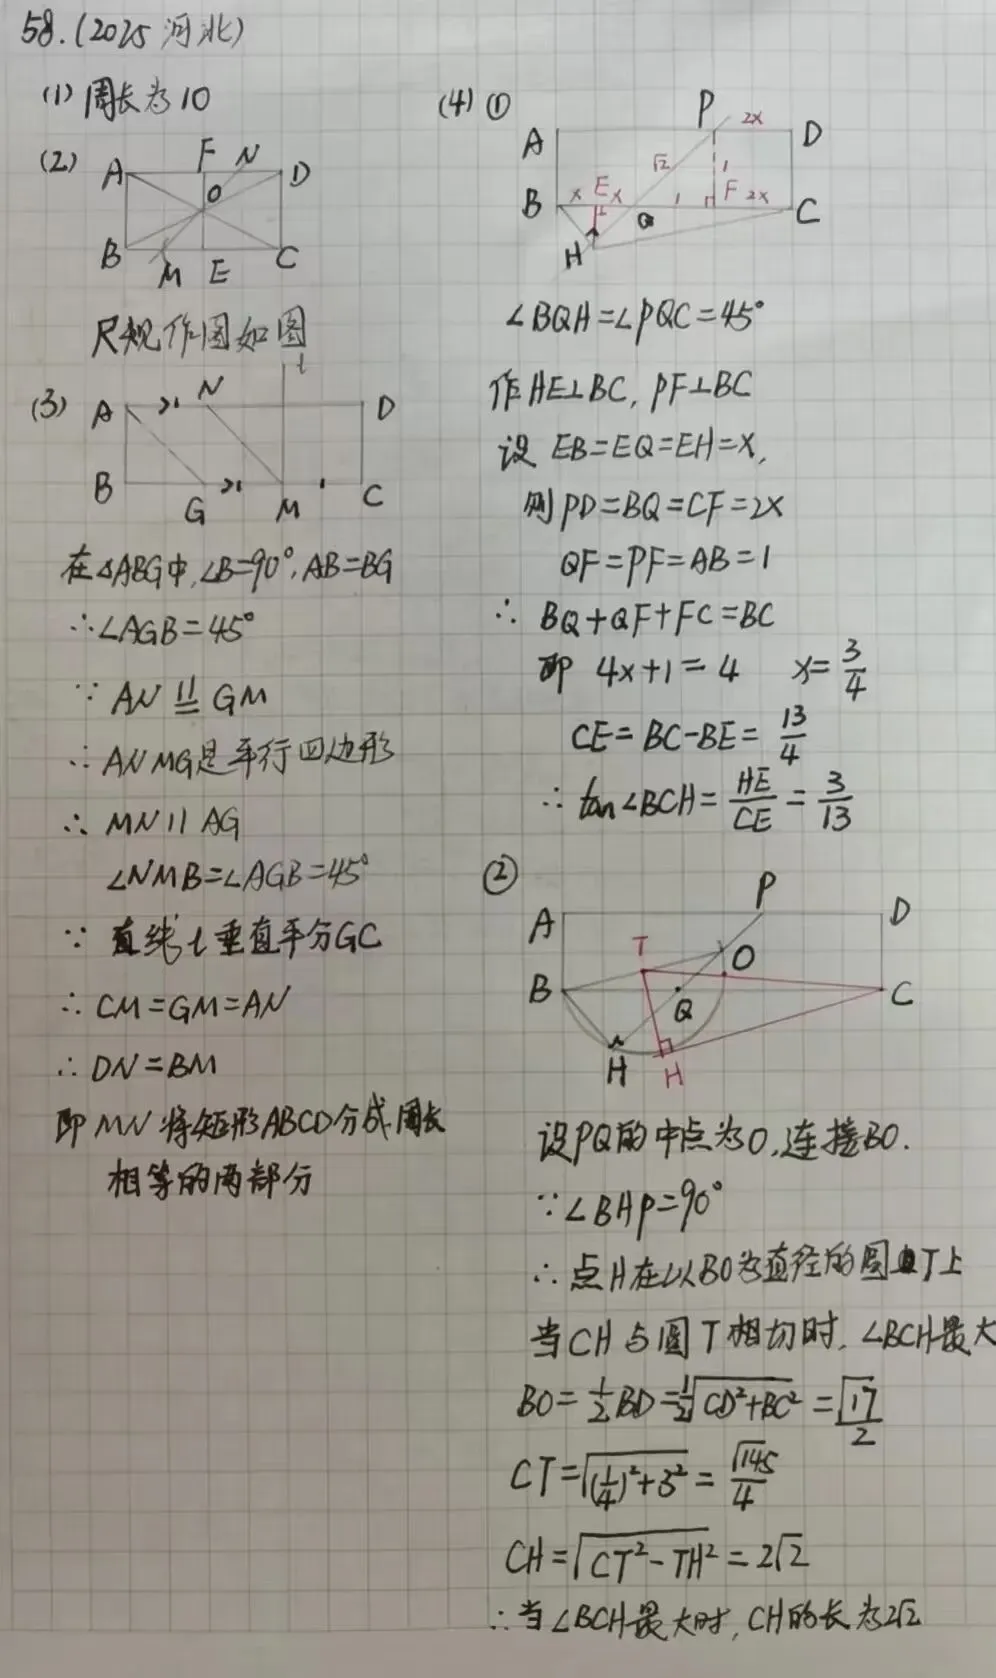 58.(2025 河北)
(1) 周长为10
(2)
A F N D
O
B M E C
尺规作图如图
(3)
l
A N D
B G M C
在△ABG中,∠B=90°,AB=BG
∴∠AGB=45°
∵ AN ∥= GM
∴ANMG是平行四边形
∴ MN∥AG
∠NMB=∠AGB=45°
∵ 直线l垂直平分GC
∴ CM=GM=AN
∴ DN=BM
即MN将矩形ABCD分成周长
相等的两部分
(4) ①
P 2x
A D
√2 1
B x E x Q 1 F 2x C
H
∠BQH=∠PQC=45°
作HE⊥BC, PF⊥BC
设 EB=EQ=EH=x,
则PD=BQ=CF=2x
QF=PF=AB=1
∴ BQ+QF+FC=BC
即 4x+1=4 x=3/4
CE=BC-BE=13/4
∴ tan∠BCH=HE/CE=3/13
②
P
A D
T O
B Q C
H H
设PQ的中点为O,连接BO.
∵∠BHP=90°
∴ 点H在以BO为直径的圆T上
当CH与圆T相切时, ∠BCH最大
BO=1/2BD=1/2√(CD²+BC²)=√17/2
CT=√((1/4)²+3²)=√145/4
CH=√(CT²-TH²)=2√2
∴当∠BCH最大时, CH的长为2√2